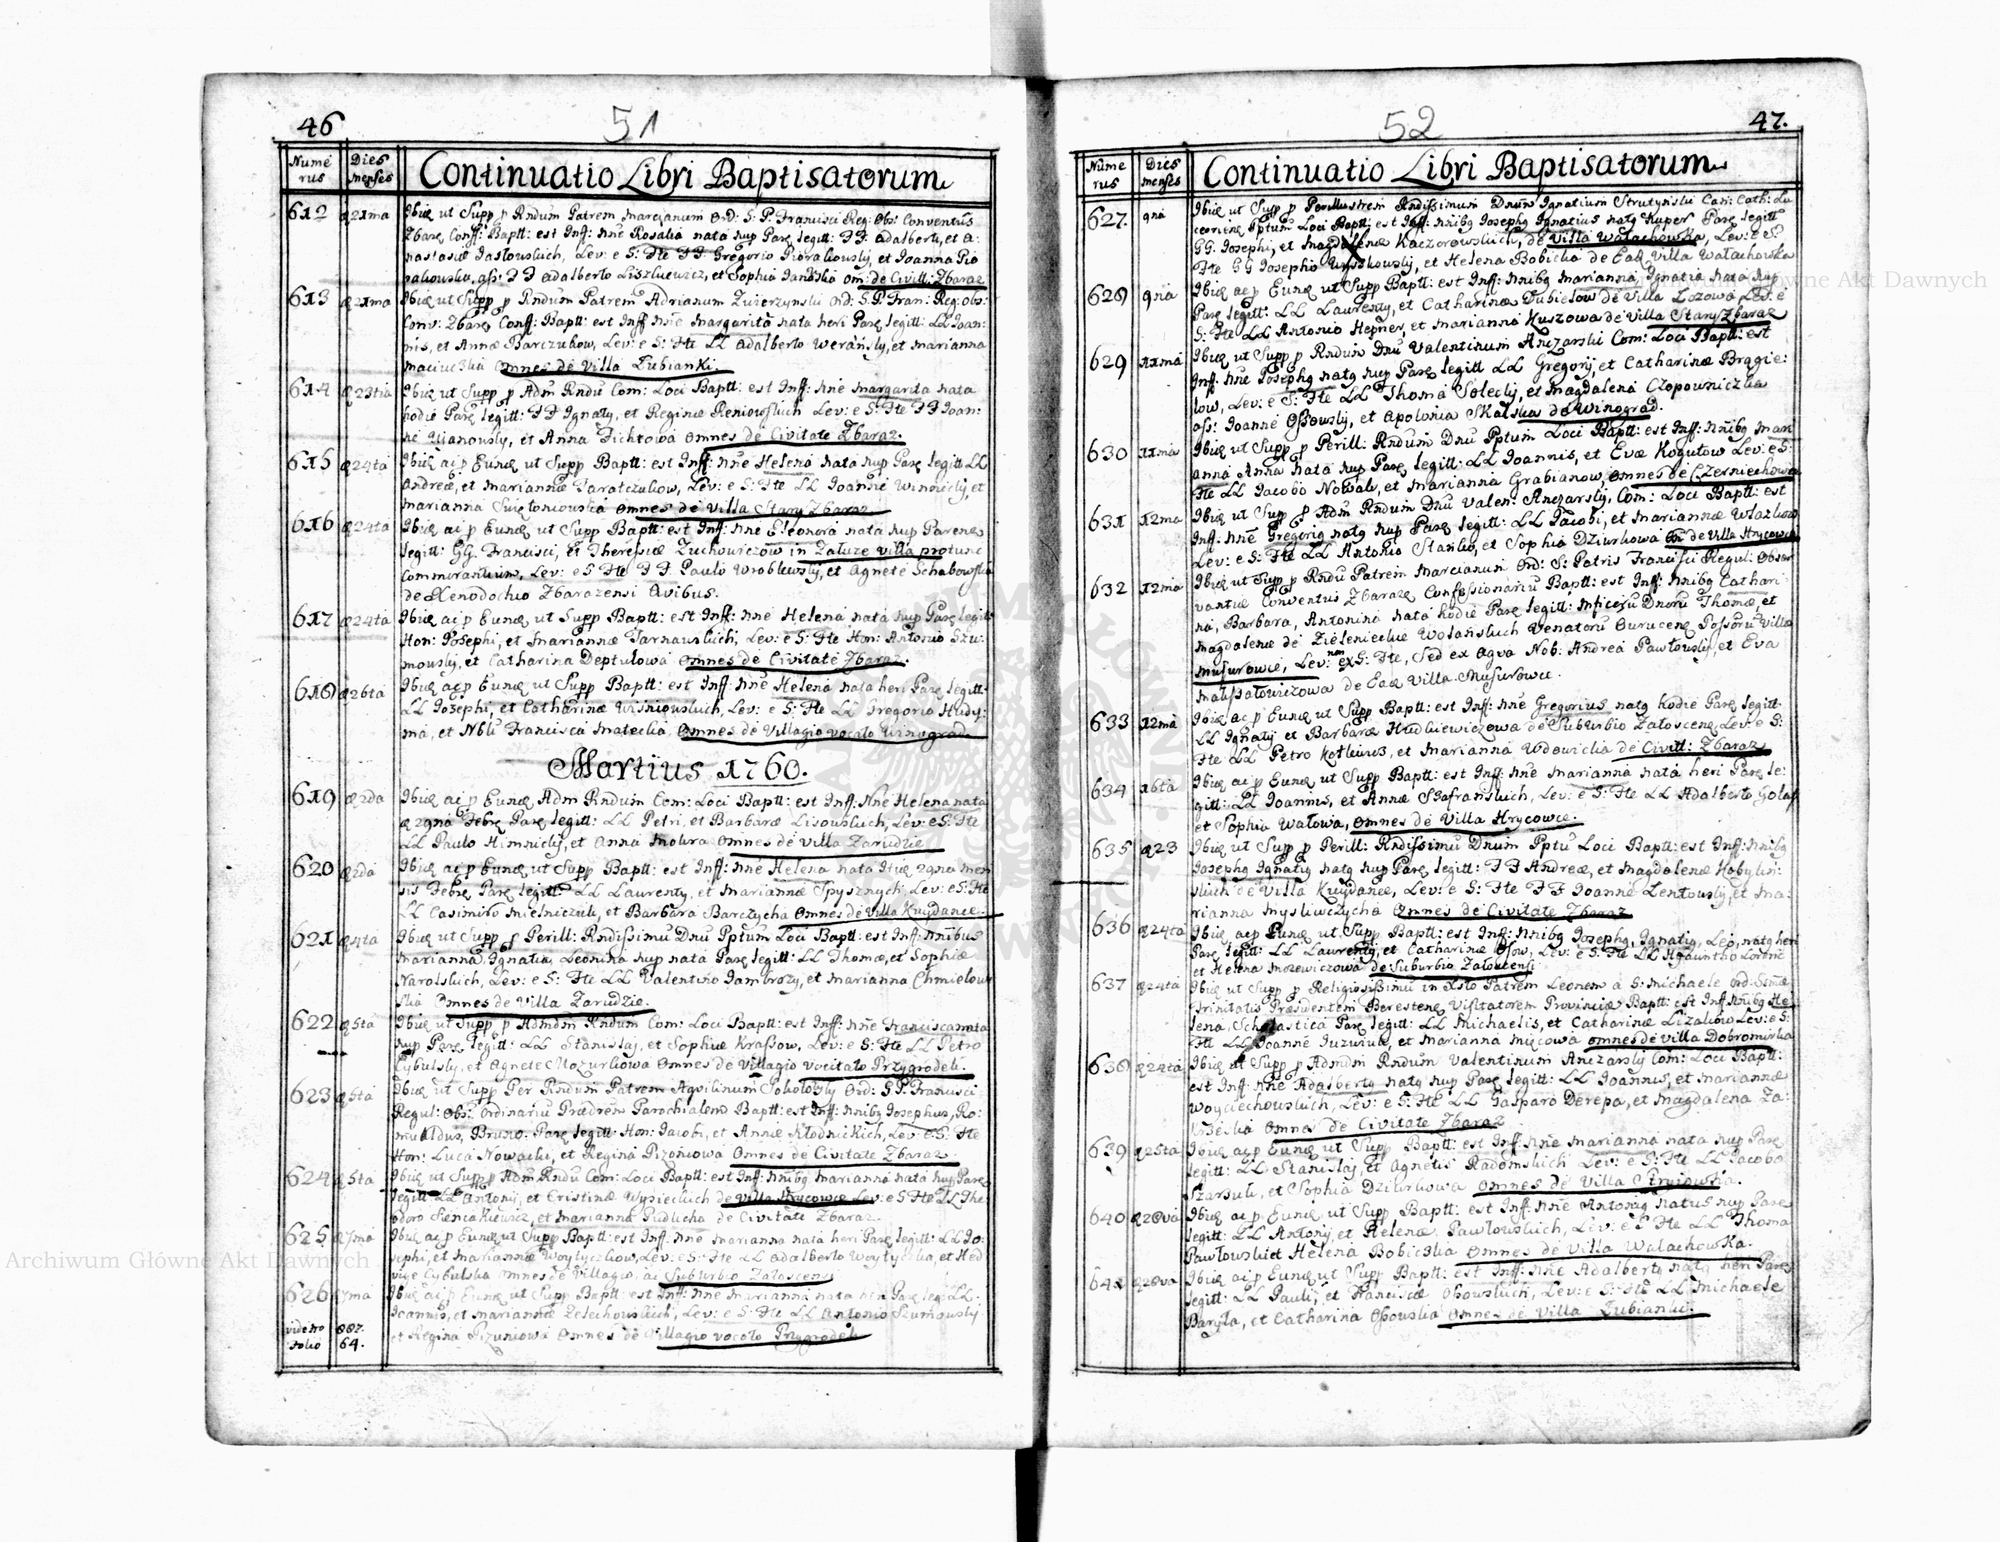 46
51
Nume
rus
Dies
menses
Continuatio Libri Baptisatorum
612 21ma Ibidę ut Supp p Rndum Patrem Marcianum Ord: S: P. Francisci Reg: Obs: Conventus
Zbarę Conff: Baptt: est Inff: nñe Rosalia nata nup Parę legitt: FF Adalberti, et A:
nastasiæ Jasłowskich, Lev: e S: Fte FF: Gregorio Piorałiowsky, et Joanna Pio
rałiowska, ass: FF Adalberto Liszkiewicz, et Sophia Janoska Om: de Civitt: Zbaraz
613 21ma Ibidę ut Supp p Rndum Patrem Adrianum Zwierzynski Ord: S: P. Fran: Reg: obs:
Conv: Zbarę Conff: Baptt: est Inff nñe Margarita nata heri Parę legitt: LL Joan:
nis, et Annæ Barczukow, Lev: e S: Fte LL Adalberto Weransky, et Marianna
Maciucska Omnes de Villa Lubianki.
614 23tia Ibidę ut Supp p Adm Rndu Com: Loci Baptt: est Inff: nñe Margarita nata
hodie Parę legitt: FF Ignaty, et Reginæ Reniowskich Lev: e S: Fte FF Joan:
ne Ujanowsky, et Anna Fichtowa Omnes de Civitate Zbaraz.
615 24ta Ibidę ac p Eundę ut Supp Baptt: est Inff: nñe Helena nata nup Parę legitt: LL
Andreæ, et Mariannæ Taratczukow, Lev: e S: Fte LL Joanne Winnicky, et
Marianna Swiętoniowska Omnes de Villa Stary Zbaraz
616 24ta Ibidę ac p Eundę ut Supp Baptt: est Inff: nñe Eleonora nata nup Parenę
legitt: GG. Francisci, et Theresiæ Zuchowiczow in Załuze villa protunc
Commorantium, Lev: e S: Fte FF Paulo Wroblewsky, et Agnete Schabowska
de Xenodochio Zbarazensi Ovibus.
617 24ta Ibidę ac p Eundę ut Supp Baptt: est Inff: nñe Helena nata nup Parę legitt:
Hon: Josephi, et Mariannæ Tarnawskich, Lev: e S: Fte Hon: Antonio Szu:
mowsky, et Catharina Deptułowa Omnes de Civitate Zbaraz.
618 26ta Ibidę ac p Eundę ut Supp Baptt: est Inff: nñe Helena nata heri Parę legitt:
LL Josephi, et Catharinæ Wisniowskich, Lev: e S: Fte LL Gregorio Hudy:
ma, et Nbli Francisca Małecka, Omnes de Villagio vocato Winograd
Martius 1760.
619 2da Ibidę ac p Eundę Adm Rndum Com: Loci Baptt: est Inff: nñe Helena nata
29na Febrę Parę legitt: LL Petri, et Barbaræ Lisowskich, Lev: e S: Fte
LL Paulo Himnicky, et Anna Mokra Omnes de Villa Zarudzie
620 2da Ibidę ac p Eundę, ut Supp Baptt: est Inff: nñe Helena nata 29na men
sis Febrę Parę legitt: LL Laurenty, et Mariannæ Spysznych, Lev: e S: Fte
LL Casimiro Mielniczuk, et Barbara Barczycha Omnes de Villa Kuydance.
621 4ta Ibidę ut Supp p Perill: Rndissimu Dnu Pptum Loci Baptt: est Inff: nñibus
Marianna, Ignatia, Leonina nup nata Parę legitt: LL Thomæ, et Sophiæ
Narolskich, Lev: e S: Fte LL Valentino Jambrozy, et Marianna Chmielow
ska Omnes de Villa Zarudzie.
622 5ta Ibidę ut Supp p Admdm Rndum Com: Loci Baptt: est Inff: nñe Francisca nata
nup Parę legitt: LL Stanislaj, et Sophiæ Krassow, Lev: e S: Fte LL Petro
Cybulsky, et Agnete Mazurkowa Omnes de Villagio vocitato Przygrodek.
623 5ta Ibidę ut Supp Per Rndum Patrem Aquilinum Sokołosky Ord: S P. Francisci
Regul: Obs: Ordinariu Prædrem Parochialem Baptt: est Inff: nñibg Josephus, Ro:
mualdus, Bruno. Parę legitt: Hon: Jacobi, et Annæ Kłodnickich, Lev: e S: Fte
Hon: Luca Nowacki, et Regina Pizoniowa Omnes de Civitate Zbaraz.
624 5ta Ibidę ut Supp p Adm Rndu Com: Loci Baptt: est Inff: nñibg Marianna nata nup Parę
legitt: LL Antony, et Cristinæ Wysieckich de Villa Hrycowce Lev: e S: Fte LL The
odoro Sieniakiewicz, et Marianna Pudlicha de Civitate Zbaraz.
625 7ma Ibidę ac p Eundę ut Supp Baptt: est Inff: nñe Marianna nata heri Parę legitt: LL Jo:
sephi, et Mariannæ Woytyczkow, Lev: e S: Fte LL Adalberto et Hed
vige Cybulska Omnes de Villagio, ac Suburbio Załoscensi
626 7ma Ibidę ac p Eundę ut Supp Baptt: est Inff: nñe Marianna nata heri Parę leg: LL.
Joannis, et Mariannæ Zelechowskich, Lev: e S: Fte LL Antonio Szumowsky
et Regina Pizuniowa Omnes de Villagio vocato Przygrodek
folio 64.
52
47.
Nume
rus
Dies
menses
Continuatio Libri Baptisatorum
627. 9na Ibidę ut Supp p Perillustrem Rndissimum Dnum Ignatium Strutynski Can: Cath: Lu
ceorienę Pptum Loci Baptt: est Inff: nñibg Josephg Ignatius natg nuper Parę legitt:
GG: Josephi, et Magdalenæ Kaczorowskich, de Villa Wałachowka, Lev: e S:
Fte GG Josepho et Helena Bobicka de Ead Villa Wałachowka
628 9na Ibidę ac p Eundę ut Supp Baptt: est Inff: nñibg Marianna Ignatia nata nup
Parę legitt: LL Laurenty, et Catharinæ Dubielow de Villa Łozowa Lev: e
S: Fte LL Antonio Hepner, et Marianna Kuszowa de Villa Stary Zbaraz
629 11ma Ibidę ut Supp p Rndum Dnu Valentinum Anczarski Com: Loci Baptt: est
Inff: nñe Josephg natg nup Parę legitt LL Gregory, et Catharinæ Bragie:
low, Lev: e S: Fte LL Thoma Solecky, et Magdalena Czopowniczka
ass: Joanne Ossowsky, et Apolonia Skalska de Winograd.
630 11ma Ibidę ut Supp p Perill: Rndum Dnu Pptum Loci Baptt: est Inff: nñibg Mari
anna Anna nata nup Parę legitt: LL Joannis, et Evæ Kogutow Lev: e S:
Fte LL Jacobo Nowak, et Marianna Grabianow, Omnes de Czerniechowa
631 12ma Ibidę ut Supp p Adm Rndum Dnu Valen: Anczarsky, Com: Loci Baptt: est
Inff: nñe Gregorig natg nup Parę legitt: LL Jacobi, et Mariannæ Wlazlow
Lev: e S: Fte LL Antonio Stanko, et Sophia Dziurkowa Om de Villa Hrycowce
632 12ma Ibidę ut Supp p Rndu Patrem Marcianum Ord: S: Patris Francisci Regul: Obser
vantiæ Conventus Zbarazę Confessionariu Baptt: est Inff: nñibg Cathari
na, Barbara, Antonina nata hodie Parę legitt: Mficoru Dnoru Thomæ, et
Magdalenæ de Zieleniecki Wolanskich Venatoru Owrucenę Possoru Villæ
Musurowce, Lev: non ex S: Fte, Sed ex Aqva Nob: Andrea Pawłowsky, et Eva
de Ead Villa Musurowce.
633 12ma Ibidę ac p Eundę ut Supp Baptt: est Inff: nñe Gregorius natg hodie Parę legitt:
LL Ignaty et Barbaræ Hudkiewiczowa de Suburbio Załoscenę Lev: e S:
Fte LL Petro et Marianna Wdowicka de Civitt: Zbaraz
634 16ta Ibidę ac p Eundę ut Supp Baptt: est Inff: nñe Marianna nata heri Parę le:
gitt: LL Joannis, et Annæ Szafranskich, Lev: e S: Fte LL Adalberto Golas
et Sophia Wałowa, Omnes de Villa Hrycowce.
635 23 Ibidę ut Supp p Perill: Rndissimu Dnum Pptu Loci Baptt: est Inff: nñibg
Josephg Ignatig natg nup Parę legitt: FF Andreæ, et Magdalenæ Kobylin:
skich de Villa Kuydance, Lev: e S: Fte FF Joanne Lentowsky, et Ma:
rianna Mysliwczycha Omnes de Civitate Zbaraz
636 24ta Ibidę ac p Eundę ut Supp Baptt: est Inff: nñibg Josephg, Ignatig, Leo, natg heri
Parę legitt: LL Laurenty, et Catharinæ Osow, Lev: e S: Fte LL Hyacintho
et Helena Mozewiczowa de Suburbio Załoscensi
637 24ta Ibidę ut Supp p Religiosissimu in Xsto Patrem Leonem à S: Michaele Ord: Ssmæ
Trinitatis Præsidentem Berestenę Visitatorem Provinciæ Baptt: est Inff: nñibg He
lena, Scholastica Parę legitt: LL Michaelis, et Catharinæ Lizakow Lev: e S:
Fte LL Joanne et Marianna Mięcowa Omnes de Villa Dobromirka
638 24ta Ibidę ut Supp p Admdm Rndum Valentinum Anczarsky Com: Loci Baptt:
est Inff: nñe Adalbertg natg nup Parę legitt: LL Joannis, et Mariannæ
Woyciechowskich, Lev: e S: Fte LL Gasparo Derepa, et Magdalena Za:
Omnes de Civitate Zbaraz
639 25ta Ibidę ac p Eundę ut Supp Baptt: est Inff: nñe Marianna nata nup Parę
legitt: LL Stanislaj, et Agnetis Radomskich Lev: e S: Fte LL Jacobo
Szarsuk, et Sophia Dziurkowa Omnes de Villa
640 28va Ibidę ac p Eundę ut Supp Baptt: est Inff: nñe Antonig natus nup Parę
legitt: LL Antony, et Helenæ Pawłowskich, Lev: e S: Fte LL Thoma
Pawłowski et Helena Bobicska Omnes de Villa Wałachowka.
641 28va Ibidę ac p Eundę ut Supp Baptt: est Inff: nñe Adalbertg natg heri Parę
legitt: LL Pauli, et Franciscæ Ossowskich, Lev: e S: Fte LL Michaele
Baryła, et Catharina Ossowska Omnes de Villa Lubianki.
Archiwum Główne Akt Dawnych
Archiwum Główne Akt Dawnych